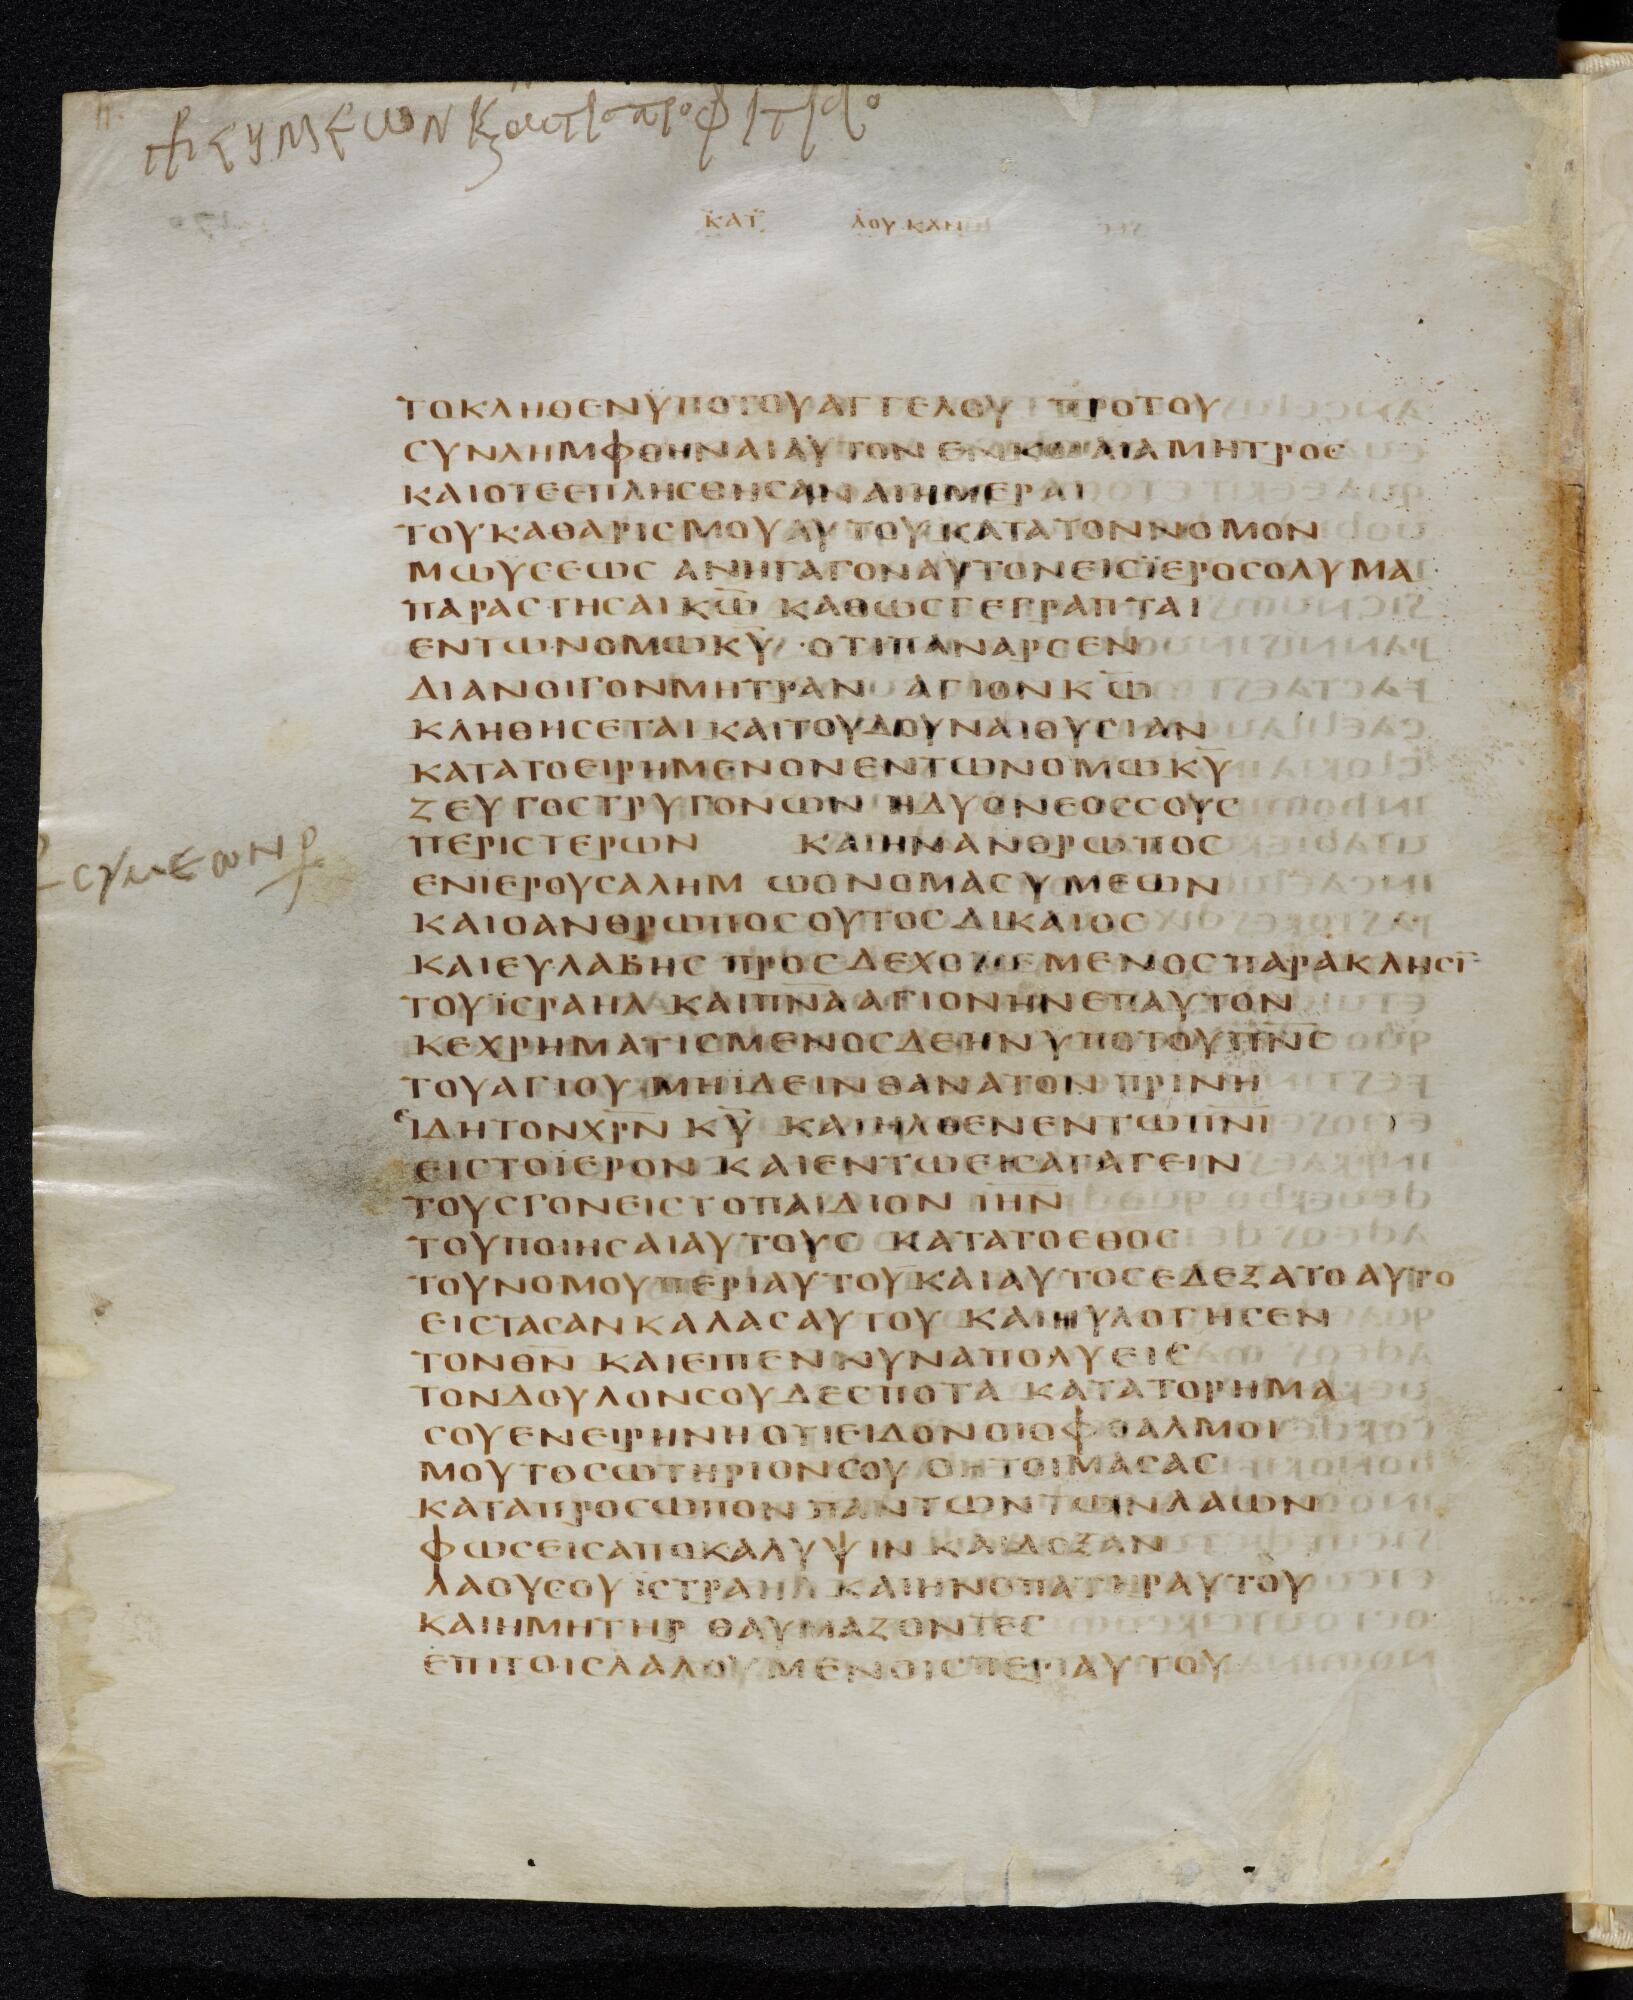 ΚΑΤ ΛΟΥΚΑΝ
ΤΟΚΛΗΘΕΝΥΠΟΤΟΥΑΓΓΕΛΟΥ ΠΡΟΤΟΥ
ΣΥΝΛΗΜΦΘΗΝΑΙΑΥΤΟΝ ΕΝΚΟΙΛΙΑΜΗΤΡΟΣ
ΚΑΙΟΤΕΕΠΛΗΣΘΗΣΑΝΑΙΗΜΕΡΑΙ
ΤΟΥΚΑΘΑΡΙΣΜΟΥΑΥΤΟΥΚΑΤΑΤΟΝΝΟΜΟΝ
ΜΩΥΣΕΩΣ ΑΝΗΓΑΓΟΝΑΥΤΟΝΕΙΣΪΕΡΟΣΟΛΥΜΑ
ΠΑΡΑΣΤΗΣΑΙ ΚΩ̅ ΚΑΘΩΣΓΕΓΡΑΠΤΑΙ
ΕΝΤΩΝΟΜΩΚΥ̅ · ΟΤΙΠΑΝΑΡΣΕΝ
ΔΙΑΝΟΙΓΟΝΜΗΤΡΑΝ ΑΓΙΟΝΚΩ̅
ΚΛΗΘΗΣΕΤΑΙ ΚΑΙΤΟΥΔΟΥΝΑΙΘΥΣΙΑΝ
ΚΑΤΑΤΟΕΙΡΗΜΕΝΟΝΕΝΤΩΝΟΜΩΚΥ̅
ΖΕΥΓΟΣΤΡΥΓΟΝΩΝ ΗΔΥΟΝΕΟΣΣΟΥΣ
ΠΕΡΙΣΤΕΡΩΝ ΚΑΙΗΝΑΝΘΡΩΠΟΣ
ΣΥΜΕΩΝ
ΕΝΙΕΡΟΥΣΑΛΗΜ ΩΟΝΟΜΑΣΥΜΕΩΝ
ΚΑΙΟΑΝΘΡΩΠΟΣΟΥΤΟΣΔΙΚΑΙΟΣ
ΚΑΙΕΥΛΑΒΗΣ ΠΡΟΣΔΕΧΟΜΕΜΕΝΟΣΠΑΡΑΚΛΗΣΙ̅
ΤΟΥΪΣΡΑΗΛ ΚΑΙΠΝ̅ΑΑΓΙΟΝΗΝΕΠΑΥΤΟΝ
ΚΕΧΡΗΜΑΤΙΣΜΕΝΟΣΔΕΗΝΥΠΟΤΟΥΠΝ̅Σ
ΤΟΥΑΓΙΟΥ ΜΗΙΔΕΙΝΘΑΝΑΤΟΝ ΠΡΙΝΗ
ΙΔΗΤΟΝΧΡΝ̅ ΚΥ̅ ΚΑΙΗΛΘΕΝΕΝΤΩΠΝ̅Ι
ΕΙΣΤΟΙΕΡΟΝ ΚΑΙΕΝΤΩΕΙΣΑΓΑΓΕΙΝ
ΤΟΥΣΓΟΝΕΙΣΤΟΠΑΙΔΙΟΝ ΙΗΝ̅
ΤΟΥΠΟΙΗΣΑΙΑΥΤΟΥΣ ΚΑΤΑΤΟΕΘΟΣ
ΤΟΥΝΟΜΟΥΠΕΡΙΑΥΤΟΥΚΑΙΑΥΤΟΣΕΔΕΞΑΤΟΑΥΤΟ
ΕΙΣΤΑΣΑΝΚΑΛΑΣΑΥΤΟΥ ΚΑΙΗΥΛΟΓΗΣΕΝ
ΤΟΝΘΝ̅ ΚΑΙΕΙΠΕΝΝΥΝΑΠΟΛΥΕΙΣ
ΤΟΝΔΟΥΛΟΝΣΟΥΔΕΣΠΟΤΑ ΚΑΤΑΤΟΡΗΜΑ
ΣΟΥΕΝΕΙΡΗΝΗΟΤΙΕΙΔΟΝΟΙΟΦΘΑΛΜΟΙ
ΜΟΥΤΟΣΩΤΗΡΙΟΝΣΟΥ ΟΗΤΟΙΜΑΣΑΣ
ΚΑΤΑΠΡΟΣΩΠΟΝΠΑΝΤΩΝΤΩΝΛΑΩΝ
ΦΩΣΕΙΣΑΠΟΚΑΛΥΨΙΝ ΚΑΙΔΟΞΑΝ
ΛΑΟΥΣΟΥΪΣΤΡΑΗΛ ΚΑΙΗΝΟΠΑΤΗΡΑΥΤΟΥ
ΚΑΙΗΜΗΤΗΡ ΘΑΥΜΑΖΟΝΤΕΣ
ΕΠΙΤΟΙΣΛΑΛΟΥΜΕΝΟΙΣΠΕΡΙΑΥΤΟΥ